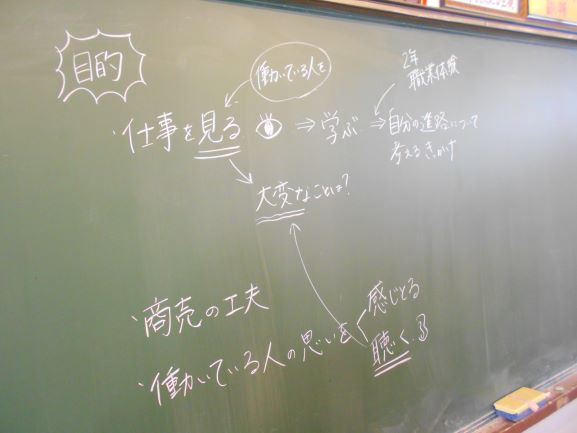 目的
働いている人を
2年
職業体験
・仕事を見る ⇒ 学ぶ ⇒ 自分の進路について
考えるきっかけ
大変なことは?
・商売の工夫
・働いている人の思いを
感じとる
聴く